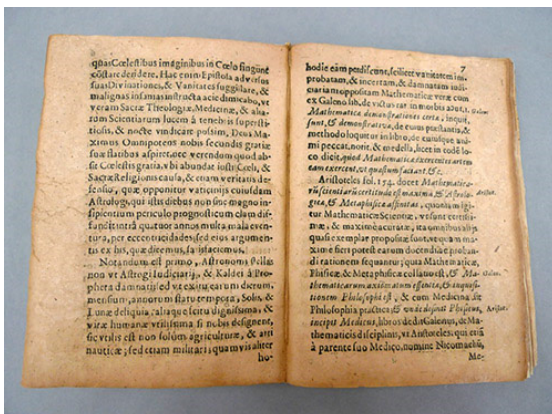 quàs Cœlestibus imaginibus in Cœlo singunt
cōstare deridere. Hac enim Epistola adversus
suas Divinationes, & Vanitates suggillare, &
malignas infamias instructa acie dimicabo, vt
veram Sacræ Theologiæ, Medecinæ, & alia-
rum Scientiarum lucem à tenebris supersti-
tiosis, & nocte vindicare possim, Deus Ma-
ximus Omnipotens nobis secundis gratiæ
suæ flatibus aspiret, nec verendum quod ab-
sit Cœlestis gratia, vbi abundat iustī Cœli, &
Sacræ Religionis causa, & etiam veritatis de-
fensio, quæ opponitur vaticiniis cuiusdam
Astrologi, qui istis diebus non sine magno in-
sipientium periculo prognosticum clam dif-
fundit intra quatuor annos multa mala even-
tura, per eccentricidades, sed eius argumen-
tis ex his, quæ dicemus, satisfaciemus.
Notandum est primo, Astronomos
non vt Astrogi Iudiciarij, & Kaldei à Pro-
pheta damnati, sed vt exituearum dierum,
mensium, annorum statu tempora, Solis, &
Lunæ deliquia, aliaque scitu dignissima, &
vitæ humanæ vtilissima si nobis designent,
sic vtilis est non solùm agriculturæ, & arti
nauticæ, sed etiam militari; quamvis aliter
ho-
7
hodie eam perdiscunt, scilicet vanitatem im-
probatam, & incertam, & damnatam iudi-
ciariam oppositam Mathematicæ veræ cum
ex Galeno lib. de victus rat. in morbis
Mathematicæ demonstrationes certæ, inquit,
sunt, & demonstrativæ, de cuius præstantia, &
methodo loquitur in libro, de cuiusque ani-
mi peccat. norit. & medella, licet in eodē lo-
co dicit, quod Mathematicæ exercentes artem
eam exercent, vt quæstum faciant. &c.
Aristoteles fol. 154. docet Mathematica-
rū scientiarū certitudo est maxima, & Astrolo- Aristot.
gica, & Metaphisicæ affinitas, quoniam igi-
tur Mathematicæ Scientiæ, vt sunt certissi-
mæ, & maximè accuratæ, ita omnibus aliis
quasi exemplar propositæ sunt, vt quam ma-
ximè fieri potest earum docendi & proban-
di rationem sequantur; quia Mathematicæ,
Phisicæ, & Metaphisicæ collatio est, & Ma-
thematicarum axiomatum essentia, & inquisi-
tionem Philosophi est, & cum Medicina sit
Philosophia practica & vnde desinit Phisicus, Aristot.
incipit Medicus, libros dedit Galenus, & Ma-
thematicis disciplinis, vt Aristoteles, qui etiā
à parente suo Medico, nomine Nicomachū,
Me-